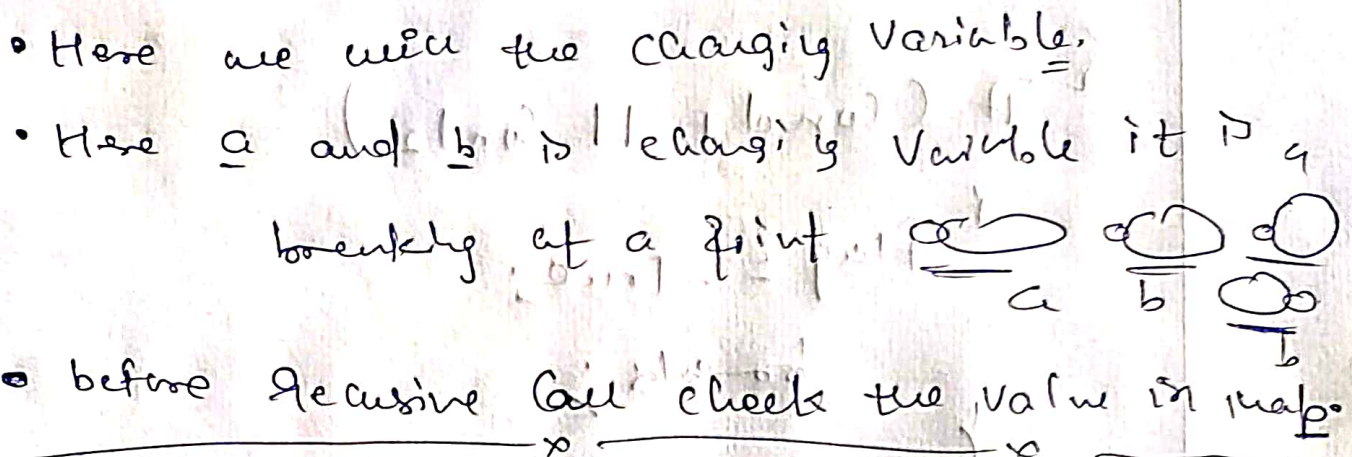 • Here are will the changing variable.
• Here a and b is changing variable it is a
breaking at a point
a b
b
• before Recursive Call check the value in map.